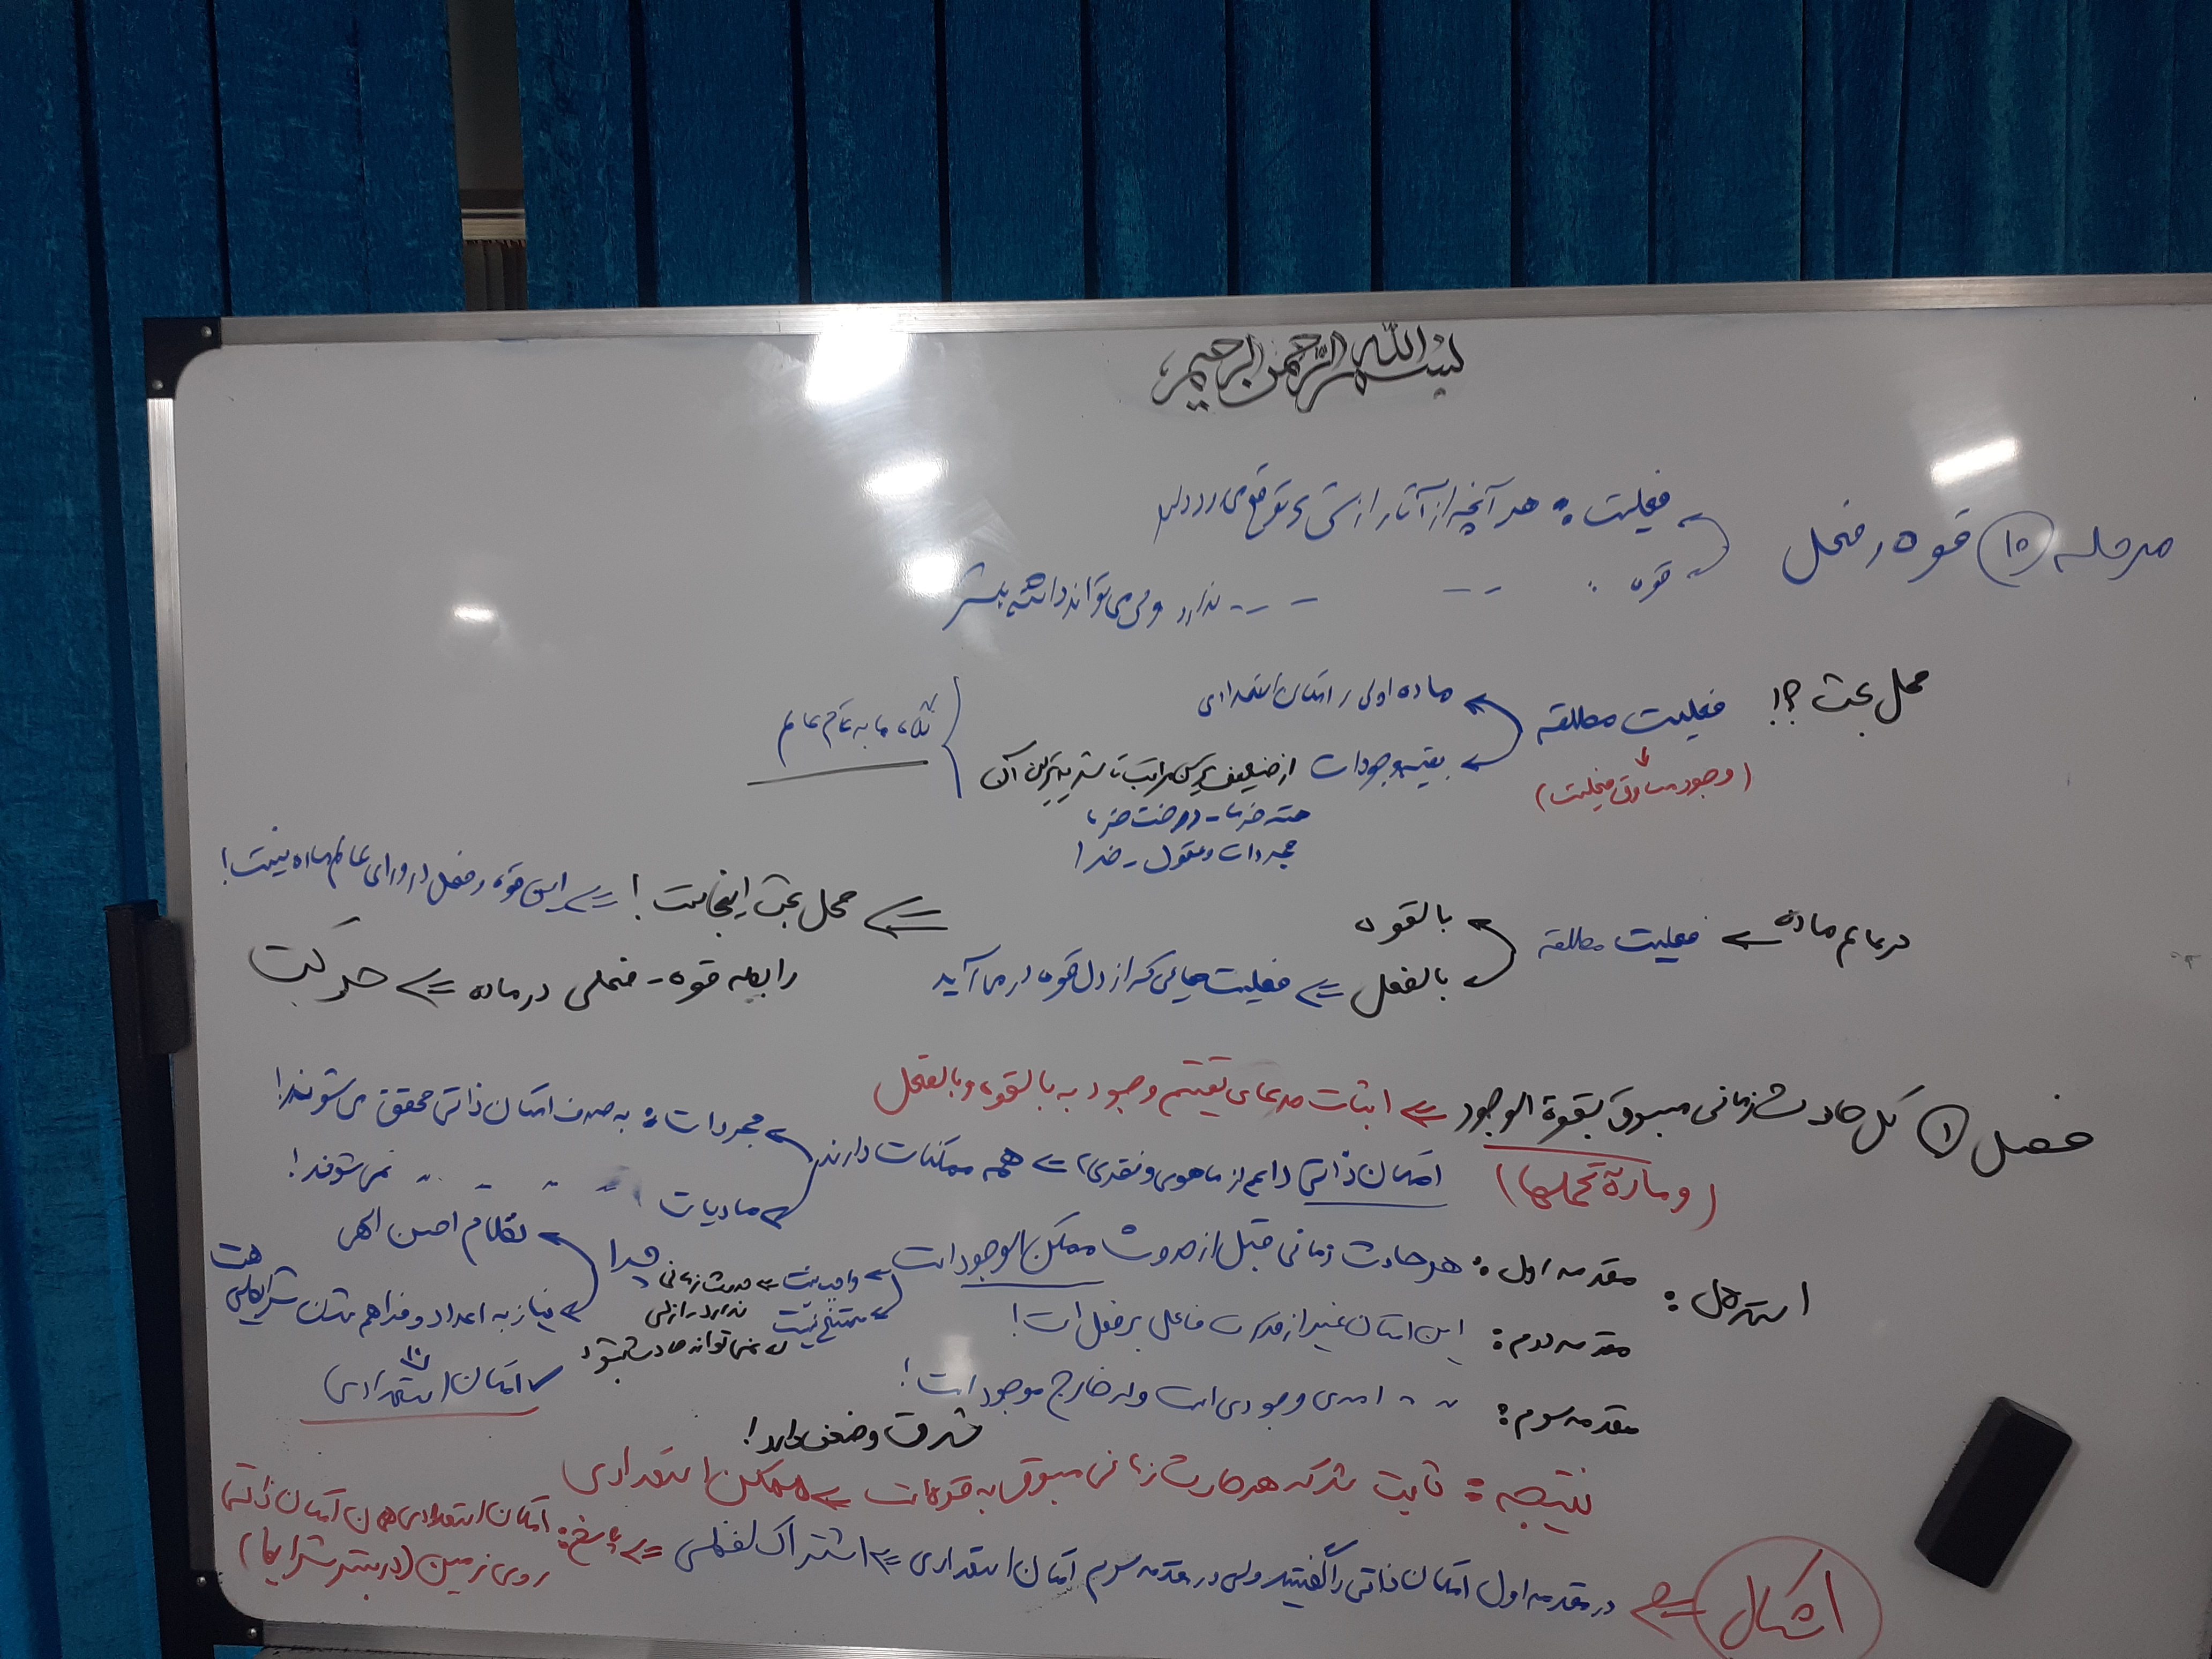 بسم الله الرحمن الرحیم
مرحله ۱۰ قوه و فعل
فعلیت: هر آنچه از آثار از شیء توقع می رود دارد
قوه: -- -- ندارد ولی می تواند داشته باشد
محل بحث؟! فعلیت مطلقه
(وجود مساوق فعلیت)
ماده اولی / امکان استعدادی
بقیه موجودات از ضعیف ترین مراتب تا شدیدترین آن
هسته خرما - درخت خرما
مجردات و عقول - خدا
نگاه ما به تمام عالم
در عالم ماده ← فعلیت مطلقه
بالقوه
بالفعل ⇐ فعلیت هایی که از دل قوه در می آید
⇐ محل بحث اینجاست! ⇐ این قوه و فعل در ورای عالم ماده نیست!
رابطه قوه - فعلی در ماده ⇐ حرکت
فصل ۱ کل حادث زمانی مسبوق بقوة الوجود ⇐ اثبات مدعای تقسیم وجود به بالقوه و بالفعل
(و مادة تحملها)
امکان ذاتی (اعم از ماهوی و فقری) ⇐ همه ممکنات دارند
مجردات: به صرف امکان ذاتی محقق می شوند!
مادیات " " " " نمی شوند!
چرا
نظام احسن الهی
نیاز به اعداد و فراهم شدن شرایطی هست
⇓
امکان استعدادی
استدلال:
مقدمه اول: هر حادث زمانی قبل از حدوث ممکن الوجود است
واجب نیست ← حدوث زمانی ندارد - ازلی
ممتنع نیست ← نمی تواند حادث بشود
مقدمه دوم: این امکان غیر از قدرت فاعل بر فعل است!
مقدمه سوم: " " امری وجودی است و در خارج موجود است!
شدت و ضعف دارد!
نتیجه: ثابت شد که هر حادث زمانی مسبوق به قوه است ⇐ ممکن استعدادی
اشکال ⇐ در مقدمه اول امکان ذاتی را گفتید ولی در مقدمه سوم امکان استعدادی ⇐ اشتراک لفظی ⇐ پاسخ: امکان استعدادی همان امکان ذاتی
روی زمین (در بستر شرایط)